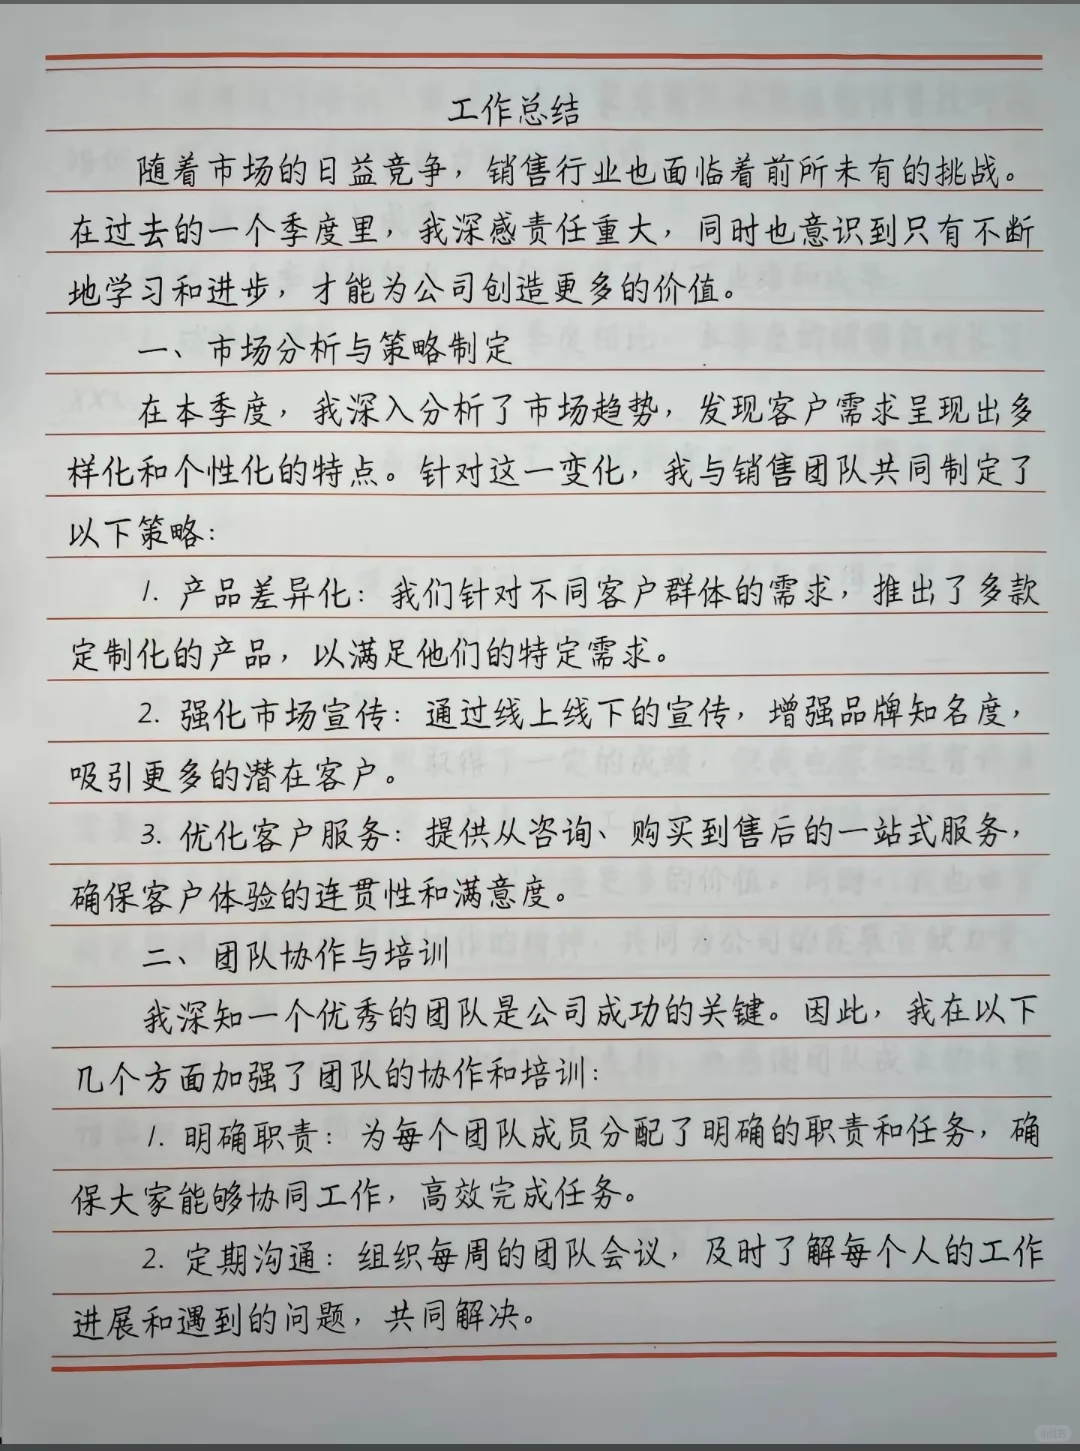 工作总结
随着市场的日益竞争，销售行业也面临着前所未有的挑战。
在过去的一个季度里，我深感责任重大，同时也意识到只有不断
地学习和进步，才能为公司创造更多的价值。
一、市场分析与策略制定
在本季度，我深入分析了市场趋势，发现客户需求呈现出多
样化和个性化的特点。针对这一变化，我与销售团队共同制定了
以下策略：
1. 产品差异化：我们针对不同客户群体的需求，推出了多款
定制化的产品，以满足他们的特定需求。
2. 强化市场宣传：通过线上线下的宣传，增强品牌知名度，
吸引更多的潜在客户。
3. 优化客户服务：提供从咨询、购买到售后的一站式服务，
确保客户体验的连贯性和满意度。
二、团队协作与培训
我深知一个优秀的团队是公司成功的关键。因此，我在以下
几个方面加强了团队的协作和培训：
1. 明确职责：为每个团队成员分配了明确的职责和任务，确
保大家能够协同工作，高效完成任务。
2. 定期沟通：组织每周的团队会议，及时了解每个人的工作
进展和遇到的问题，共同解决。
小红书